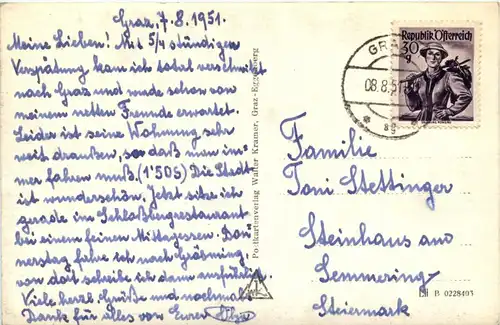 Graz, 7.8.1951.
Meine Lieben! Mit 5/4 stündigen
Verspätung kam ich total verschwitzt
nach Graz und wurde schon von
meinem netten Freunde erwartet.
Leider ist seine Wohnung sehr
weit draußen, so daß man im-
mer fahren muß. (1'50 S) Die Stadt
ist wunderschön. Jetzt sitze ich
gerade im Schloßbergrestaurant
bei einem feinen Mittagessen. Don-
nerstag fahre ich nach Gröbming,
von dort schreibe ich dann ausführlich.
Viele herzl. Grüße und nochmals
Dank für alles von Eurer
Postkartenverlag Walter Kramer, Graz-Eggenberg
Republik Österreich
30 g
GRAZ
08.8.51
Familie
Toni Stettinger
Steinhaus am
Semmering
Steiermark
B 0228493